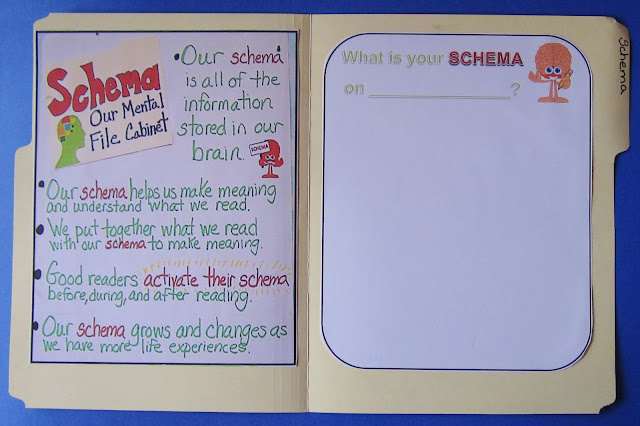 Schema
Our Mental
File Cabinet
• Our schema
is all of the
information
stored in our
brain.
SCHEMA
• Our schema helps us make meaning
and understand what we read.
• We put together what we read
with our schema to make meaning.
• Good readers activate their schema
before, during, and after reading.
• Our schema grows and changes as
we have more life experiences.
What is your SCHEMA
on ____________________?
Schema